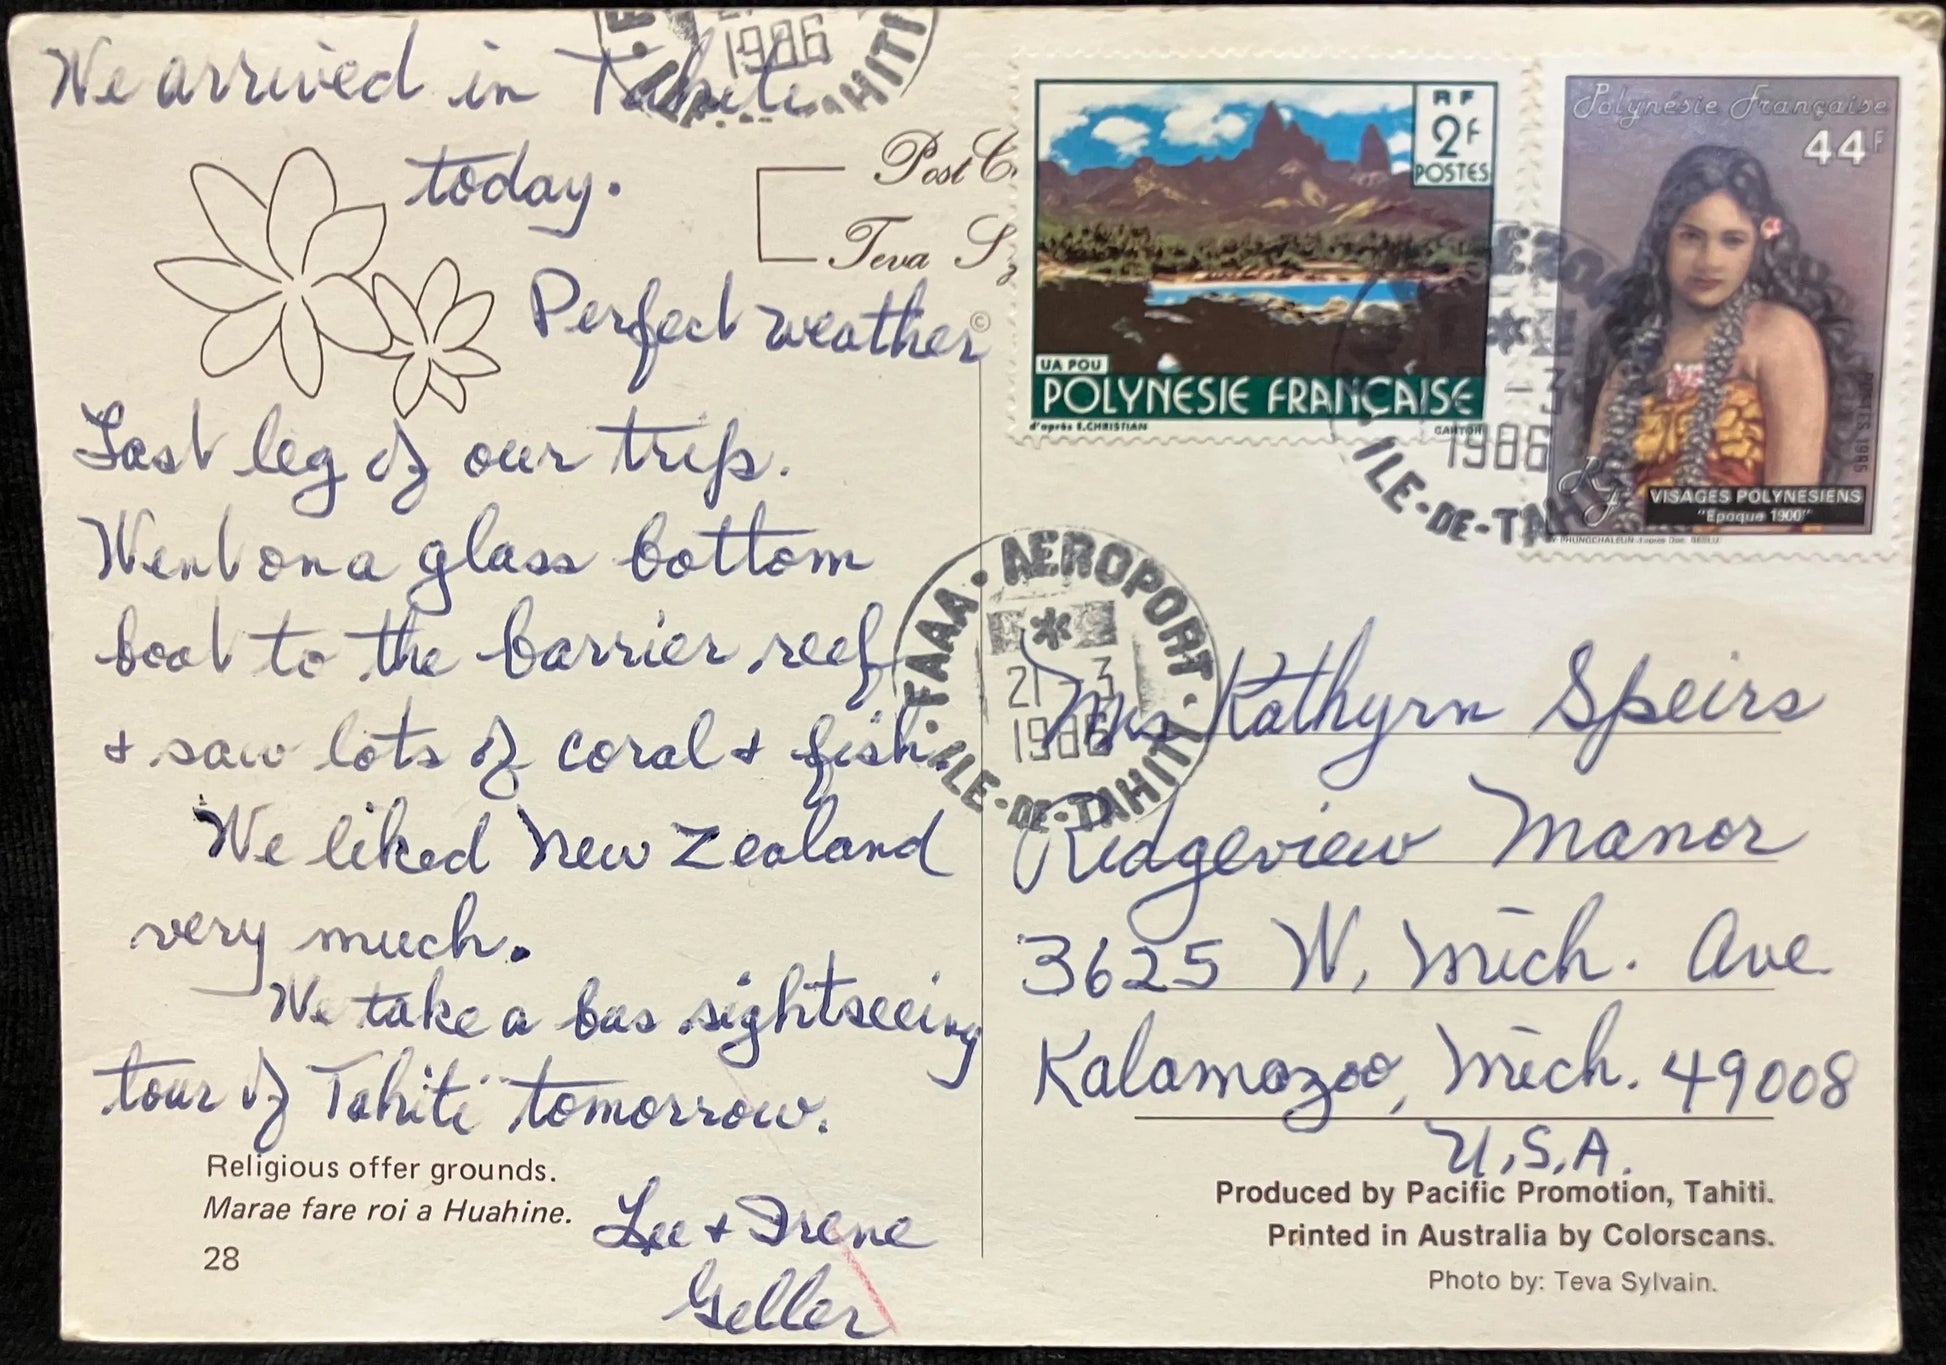 We arrived in Tahiti
today.
Perfect weather
Last leg of our trip.
Went on a glass bottom
boat to the barrier reef
+ saw lots of coral + fish.
We liked New Zealand
very much.
We take a bus sightseeing
tour of Tahiti tomorrow.
Lee + Irene
Geller
Religious offer grounds.
Marae fare roi a Huahine.
28
Post C
Teva S
©
1986
TAHITI
RF
2F
POSTES
UA POU
POLYNESIE FRANÇAISE
d'après E.CHRISTIAN
Polynésie Française
44F
POSTES 1985
RF
VISAGES POLYNESIENS
"Epoque 1900"
1986
ILE-DE-TAHITI
FAAA · AEROPORT
21 - 3
1986
ILE-DE-TAHITI
Mrs Kathyrn Speirs
Ridgeview Manor
3625 W. Mich. Ave
Kalamazoo, Mich. 49008
U.S.A.
Produced by Pacific Promotion, Tahiti.
Printed in Australia by Colorscans.
Photo by: Teva Sylvain.